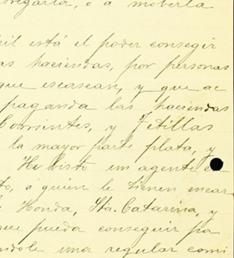 bregarla, o a moberla
cil está el poder conseguir
as haciendas, por personas
que escasean, y que ac
paganda las haciendas
Corrientes, y Jetillas
la mayor parte plata, y
He bisto un agente
to, a quien le tienen encar
e Honda, Sta. Catarina, y
que pueda conseguir pa
ndole una regular comi